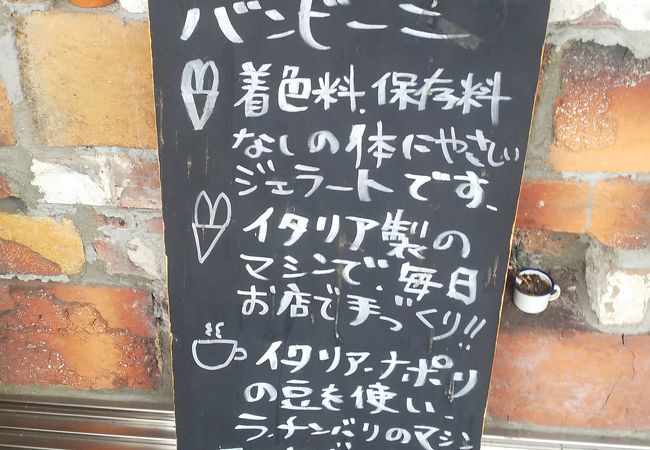 バンビーニ
着色料、保存料
なしの体にやさしい
ジェラートです。
イタリア製の
マシンで、毎日
お店で手づくり!!
イタリア、ナポリ
の豆を使い、
ラ・チンバリのマシン